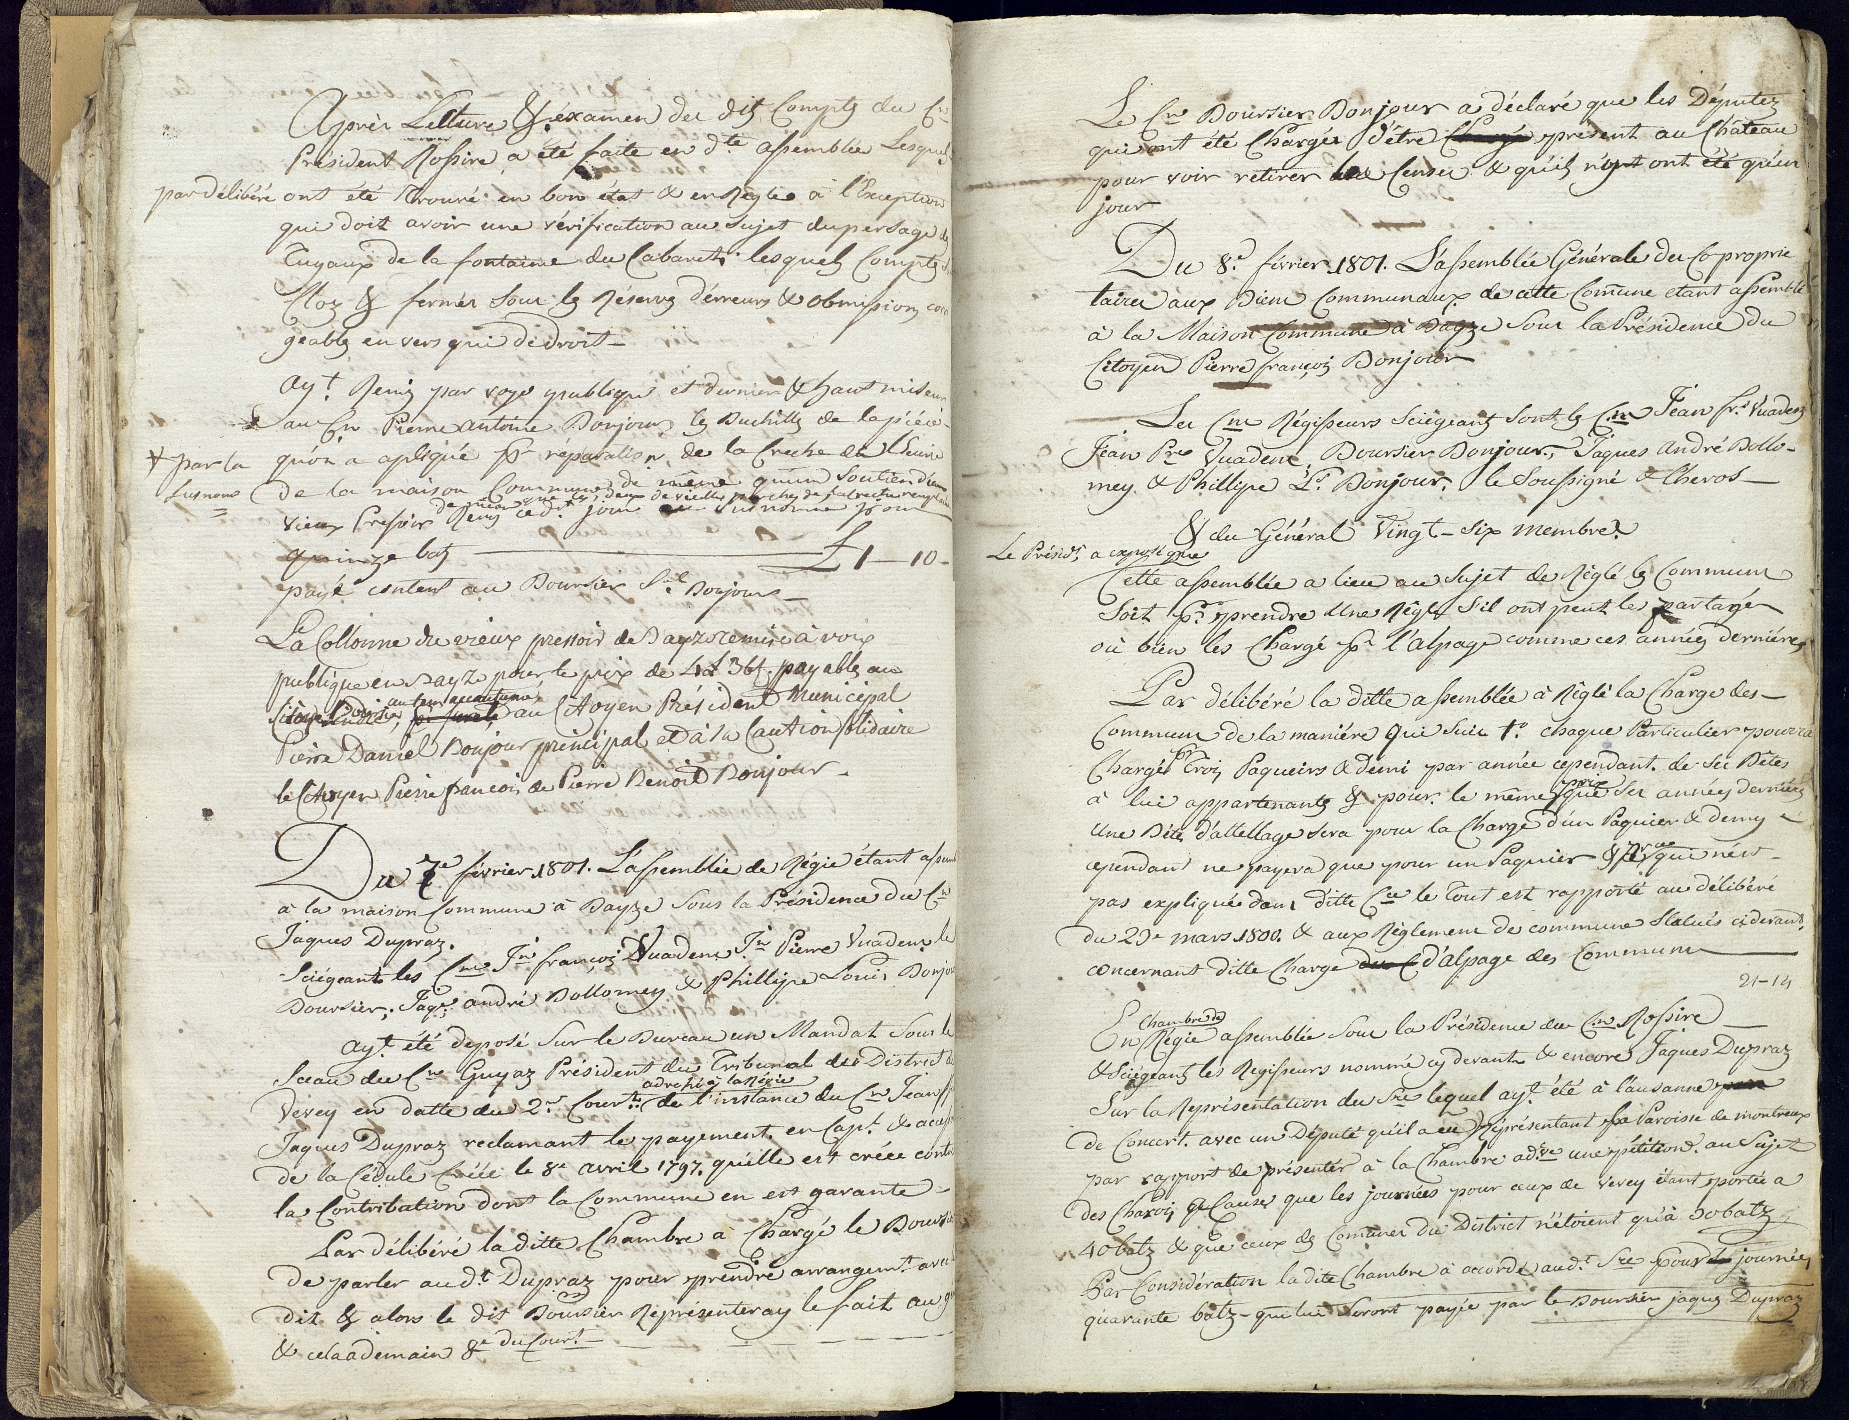 Après Lecture & éxamen des dits Compts du Cn
Président Rossire a été faite en dte assemblée Lesquels
par délibéré ont été Trouvé en bon état & en Regle à l'Exception
qui doit avoir une vérification au sujet du persage de
Tuyaux de la fontaine du Cabaret, lesquels Compts
Clos & fermés sous les Réserves d'erreurs & obmission, corri
geables envers qui de droit
ayt. Remis par voye publique et dernier & haut miseur
au Cn Pierre antoine Bonjour les Buchilles de la piéce
qu'on a apliqué pr réparation de la Creche de l'Ecurie
+ par la
susnomé
de la maison Commune de même qu'un soutien d'un
que les deux de vieilles perches de
vieux Pressoir Remis ce dit jour au susnomé pour
quinze batz £ 1 — 10 -
payé contens au Boursier Bonjour
La Collonne du vieux pressoir de Bayze remise à voix
publique en Bayze pour le prix de 4 £ 3 bz payable au
Citoyen Boursier, au tems accoutumé au Citoyen Président Municipal
Pierre Daniel Bonjour principal et à la Caution Solidaire
le Citoyen Pierre francois de Pierre Benoit Bonjour.
Du 7e février 1801. L'assemblée de Régie étant assemb
à la maison Commune à Bayze sous la Présidence du Cn
Jaques Dupraz.
Sciégeants les Cns Jn françois Vuadens Jn Pierre Vuadens le
Boursier, Jaqs andré Dollomey & Phillipe Louis Bonjour
ayt été deposé sur le Bureau un Mandat sous le
Sceau du Cn Guyaz Président du Tribunal du District de
adressé à la Régie
Vevey en datte du 2e Court. de l'instance du Cn Jean fs
Jaques Dupraz reclamant le payement en Capt. & accessoires
de la Cédule Créée le 8e avril 1797. qu'elle est créée contre
la Contribution dont la Commune en est garante
Par délibéré la ditte Chambre a Chargé le Boursier
de parler au dt Dupraz pour prendre arrangemt. avec
dit & alors le dit Boursier Représenteray le fait au g
& cela à demain 8e du Court
Le Cn Boursier Bonjour a déclaré que les Députez
qui ont été Chargés d'être présent au Château
pour voir retirer les Censes & qu'ils n'y ont été qu'un
jour
Du 8e. février 1801. L'assemblée Générale des Coproprie
taires aux Biens Communaux de cette Comune étant assemblé
à la Maison Commune à Bayze sous la Présidence du
Citoyen Pierre françois Bonjour
Les Cns Régisseurs Sciégeants sont les Cns Jean frs Vuadens
Jean Pre Vuadens, Boursier Bonjour, Jaques André Dollo-
mey & Phillipe Ls. Bonjour. le Soussigné & Cheros
& du Général Vingt-six membres
Le Présidt. a exposé que
Cette assemblée a lieu au sujet de Réglé les Communs
soit pr. prendre une Régle s'il ont peut les partagér
où bien les Chargé pr l'alpage comme ces années dernières
Par délibéré la ditte assemblée a Réglé la Charge des
Communs de la maniére qui suit 1º chaque Particulier pourra
Chargér pr Trois Paquiers & demi par année cependant. de ses Bêtes
à lui appartenants & pour. le même prix que ses années dernières
une Bête d'attellage sera pour la Charge d'un Paquier & demy
cependant ne payera que pour un Paquier & ce qui n'est
pas expliqué dans ditte Cce le tout est rapporté au délibéré
du 29e mars 1800. & aux Réglement de commune statués cidevant
concernant ditte Charge d'alpage des Communs
21-14
Chambre de
En Régie assemblée sous la Présidence du Cn Rossire
& Sciégeants les Regisseurs nommé cy devants & encore Jaques Dupraz
Sur la Représentation du Sre lequel ayt. été à Lausanne
de Concert. avec un Député qu'il a eu Représentant la Paroisse de montreux
par rapport de présentér à la Chambre adve une pétition. au Sujet
des Charois & Cause que les journées pour ceux de Vevey étant portée a
40 batz & que ceux des Comunes du District n'étoient qu'à 30 batz
Par Considération la dite Chambre à accordé au dt. Sre pour journées
quarante batz - qui lui seront payée par le Boursier jaques Dupraz